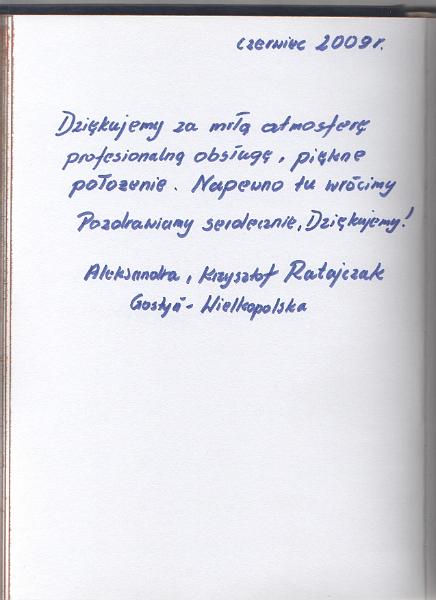 czerwiec 2009r.
Dziękujemy za miłą atmosferę
profesionalną obsługę, piękne
położenie. Napewno tu wrócimy
Pozdrawiamy serdecznie, Dziękujemy!
Aleksandra, Krzysztof Ratajczak
Gostyń - Wielkopolska